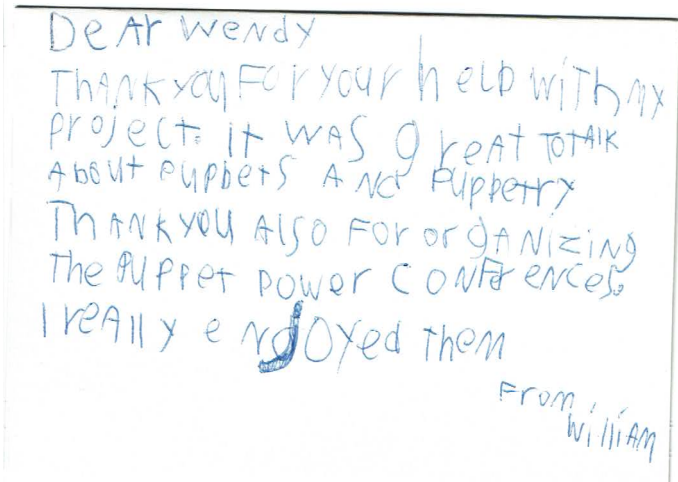 Dear Wendy
Thank you For your help with my
project. it was great to talk
About puppets And Puppetry
Thank you Also For organizing
The Puppet power Conferences.
I really enjoyed them
From,
William